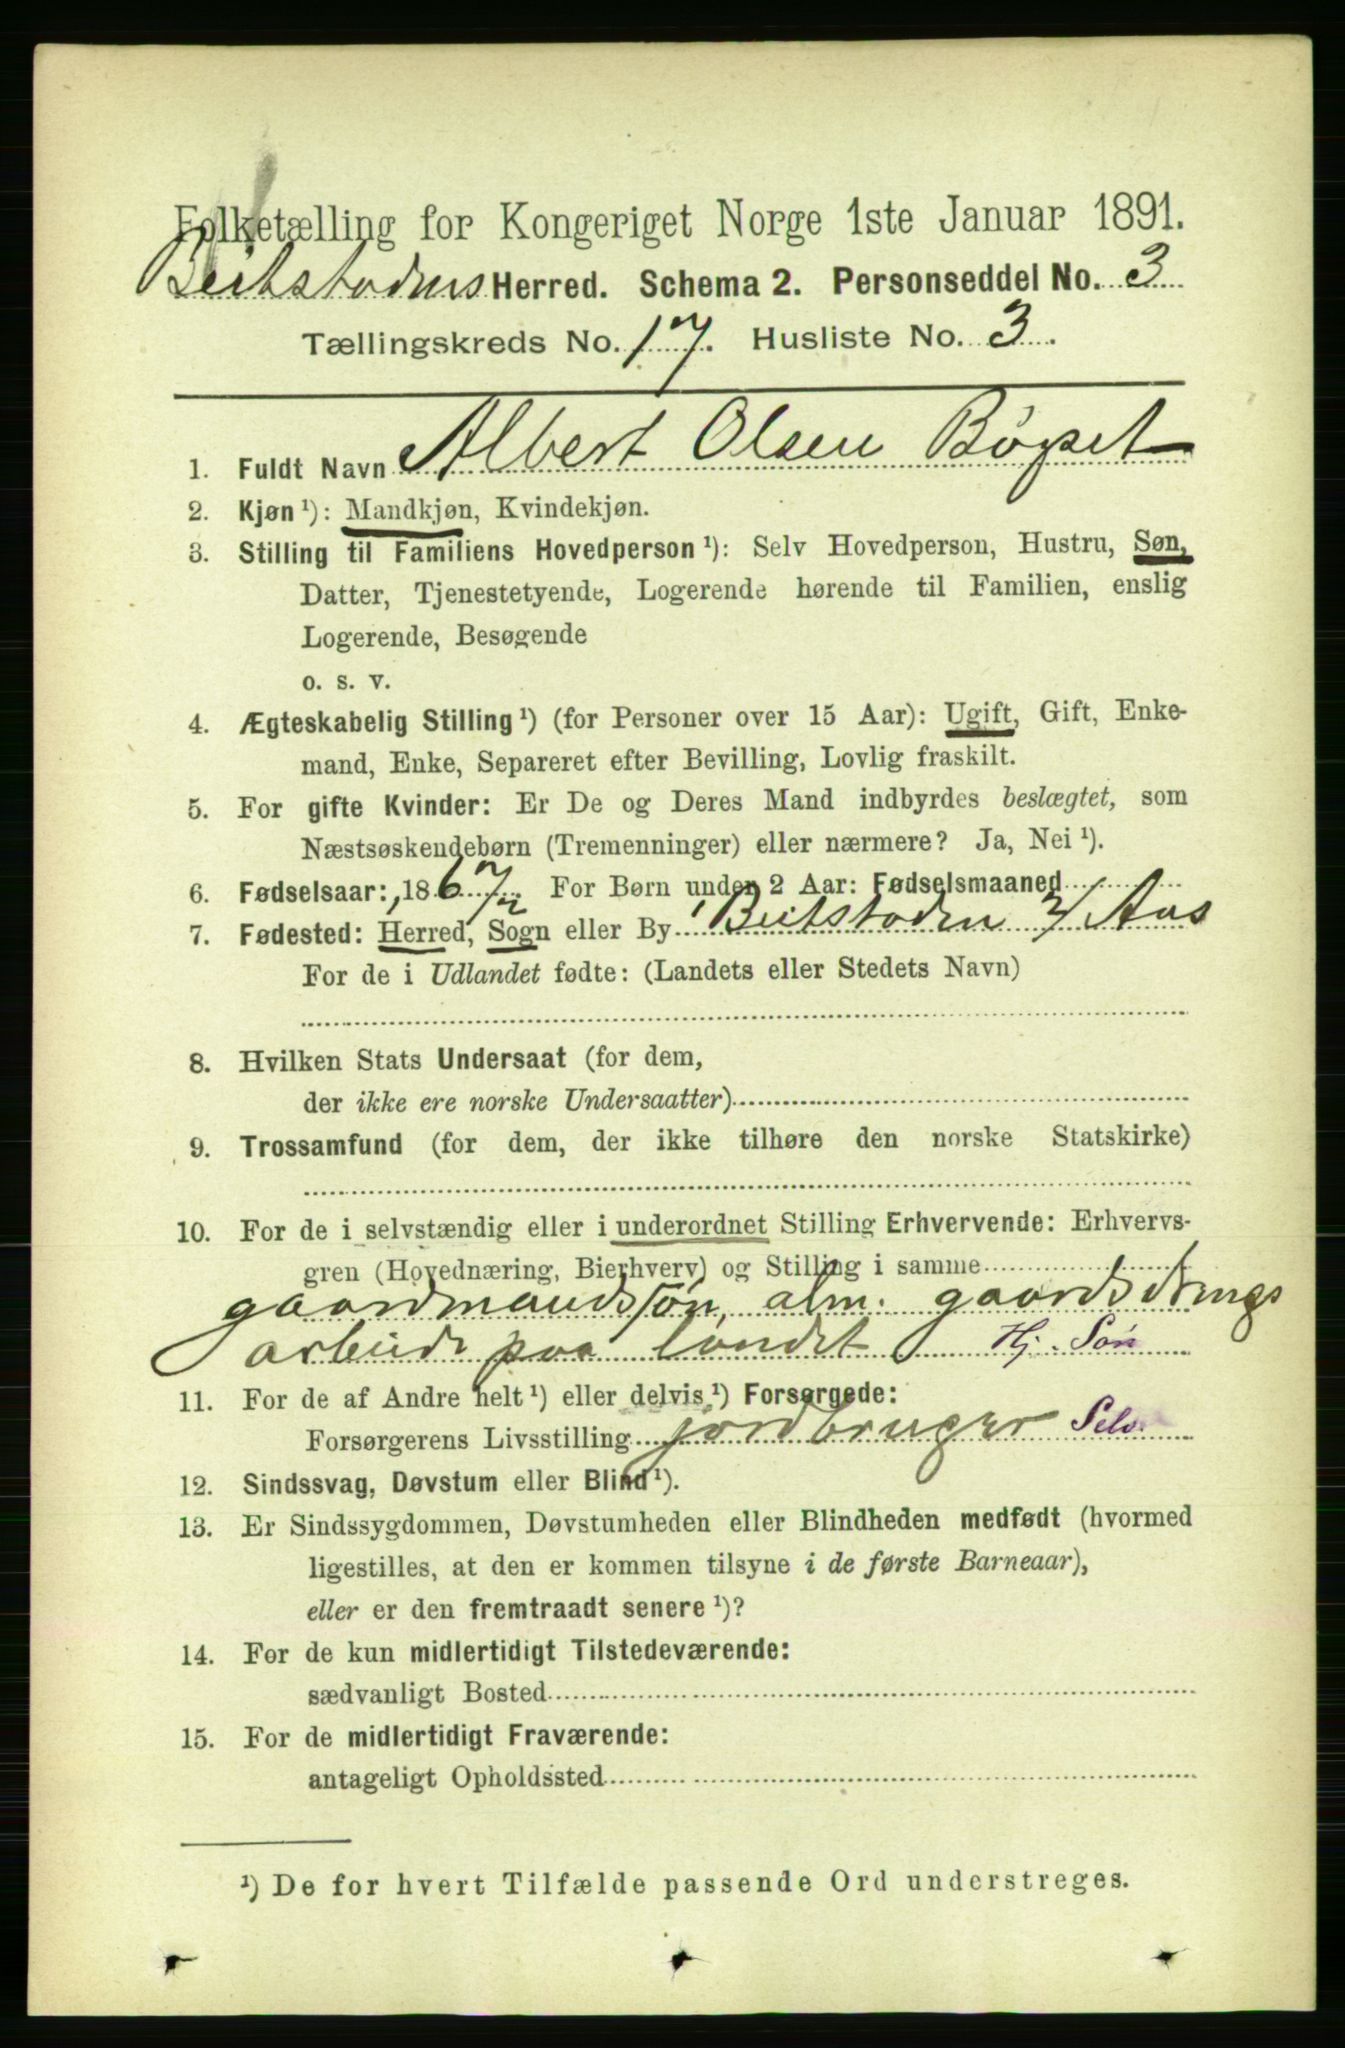 Folketælling for Kongeriget Norge 1ste Januar 1891.
Beitstadens Herred. Schema 2. Personseddel No. 3
Tællingskreds No. 17. Husliste No. 3.
1. Fuldt Navn Albert Olsen Bøgset
2. Kjøn ¹): Mandkjøn, Kvindekjøn.
3. Stilling til Familiens Hovedperson ¹): Selv Hovedperson, Hustru, Søn,
Datter, Tjenestetyende, Logerende hørende til Familien, enslig
Logerende, Besøgende
o. s. v.
4. Ægteskabelig Stilling ¹) (for Personer over 15 Aar): Ugift, Gift, Enke-
mand, Enke, Separeret efter Bevilling, Lovlig fraskilt.
5. For gifte Kvinder: Er De og Deres Mand indbyrdes beslægtet, som
Næstsøskendebørn (Tremenninger) eller nærmere? Ja, Nei ¹).
6. Fødselsaar: 1867 For Børn under 2 Aar: Fødselsmaaned
7. Fødested: Herred, Sogn eller By Beitstaden
For de i Udlandet fødte: (Landets eller Stedets Navn)
8. Hvilken Stats Undersaat (for dem,
der ikke ere norske Undersaatter)
9. Trossamfund (for dem, der ikke tilhøre den norske Statskirke)
10. For de i selvstændig eller i underordnet Stilling Erhvervende: Erhvervs-
gren (Hovednæring, Bierhverv) og Stilling i samme
gaardmandssøn, alm. gaardsdrings
arbeide paa landet Hj. Søn
11. For de af Andre helt ¹) eller delvis ¹) Forsørgede:
Forsørgerens Livsstilling jordbruger Selv
12. Sindssvag, Døvstum eller Blind ¹).
13. Er Sindssygdommen, Døvstumheden eller Blindheden medfødt (hvormed
ligestilles, at den er kommen tilsyne i de første Barneaar),
eller er den fremtraadt senere ¹)?
14. For de kun midlertidigt Tilstedeværende:
sædvanligt Bosted
15. For de midlertidigt Fraværende:
antageligt Opholdssted
¹) De for hvert Tilfælde passende Ord understreges.